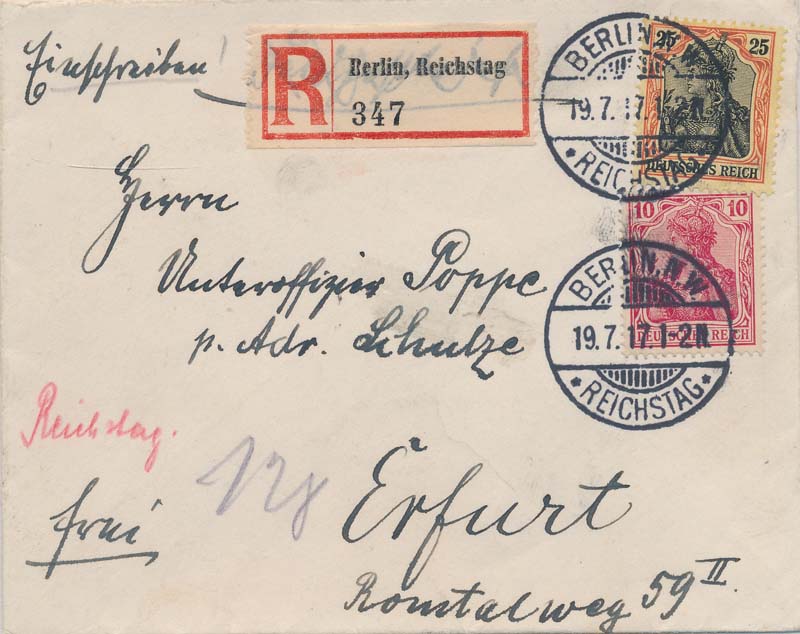 Einschreiben!
R
Berlin, Reichstag
347
BERLIN. N.W.
19.7.17.1-2N.
* REICHSTAG *
25 25
DEUTSCHES REICH
10 10
DEUTSCHES REICH
BERLIN. N.W.
19.7.17.1-2N.
* REICHSTAG *
Herrn
Unteroffizier Poppe
p. Adr. Schulze
Reichstag.
frei
128
Erfurt
Romtalweg 59 II.